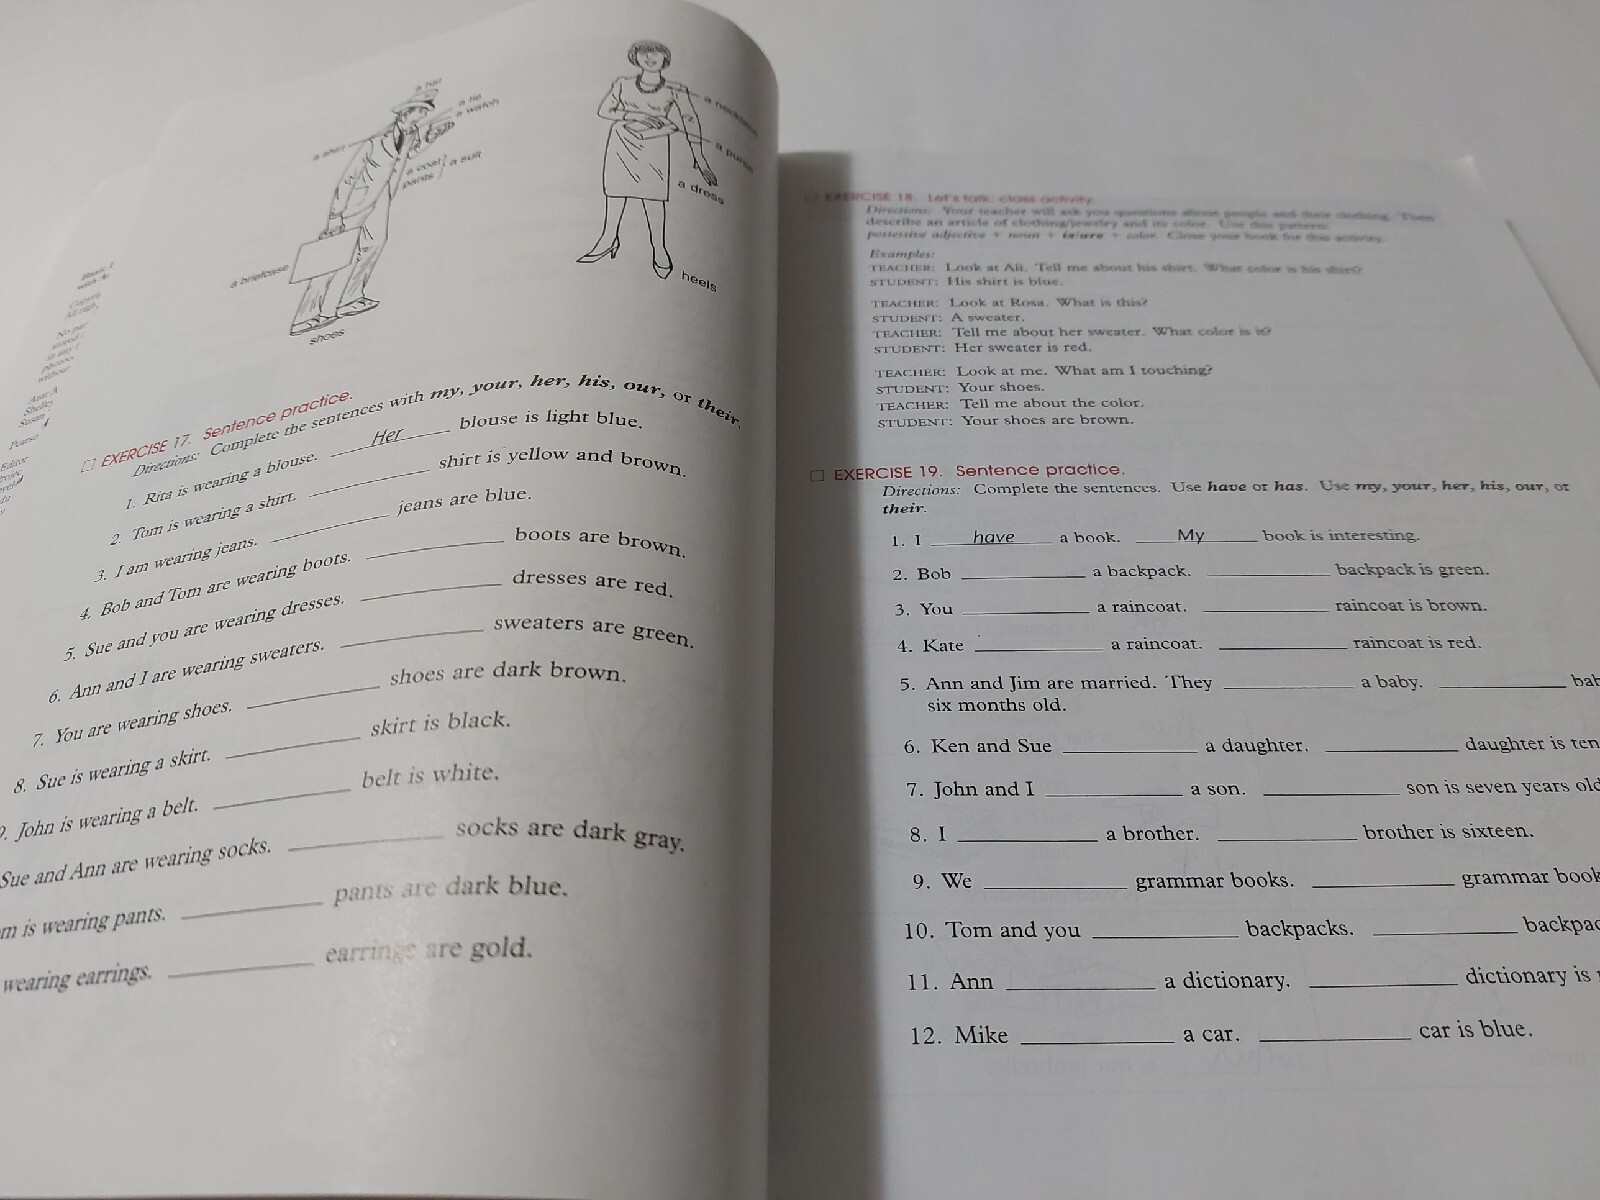 a hat
a tie
a watch
a shirt
a coat
a suit
pants
a briefcase
shoes
a necklace
a purse
a dress
heels
EXERCISE 17. Sentence practice.
Directions: Complete the sentences with my, your, her, his, our, or their.
1. Rita is wearing a blouse. Her blouse is light blue.
2. Tom is wearing a shirt. shirt is yellow and brown.
3. I am wearing jeans. jeans are blue.
4. Bob and Tom are wearing boots. boots are brown.
5. Sue and you are wearing dresses. dresses are red.
6. Ann and I are wearing sweaters. sweaters are green.
7. You are wearing shoes. shoes are dark brown.
8. Sue is wearing a skirt. skirt is black.
9. John is wearing a belt. belt is white.
Sue and Ann are wearing socks. socks are dark gray.
m is wearing pants. pants are dark blue.
wearing earrings. earrings are gold.
EXERCISE 18. Let's talk: class activity.
Directions: Your teacher will ask you questions about people and their clothing. Then
describe an article of clothing/jewelry and its color. Use this pattern:
possessive adjective + noun + is/are + color. Close your book for this activity.
Examples:
TEACHER: Look at Ali. Tell me about his shirt. What color is his shirt?
STUDENT: His shirt is blue.
TEACHER: Look at Rosa. What is this?
STUDENT: A sweater.
TEACHER: Tell me about her sweater. What color is it?
STUDENT: Her sweater is red.
TEACHER: Look at me. What am I touching?
STUDENT: Your shoes.
TEACHER: Tell me about the color.
STUDENT: Your shoes are brown.
EXERCISE 19. Sentence practice.
Directions: Complete the sentences. Use have or has. Use my, your, her, his, our, or
their.
1. I have a book. My book is interesting.
2. Bob a backpack. backpack is green.
3. You a raincoat. raincoat is brown.
4. Kate a raincoat. raincoat is red.
5. Ann and Jim are married. They a baby. bab
six months old.
6. Ken and Sue a daughter. daughter is ten
7. John and I a son. son is seven years old
8. I a brother. brother is sixteen.
9. We grammar books. grammar book
10. Tom and you backpacks. backpac
11. Ann a dictionary. dictionary is
12. Mike a car. car is blue.